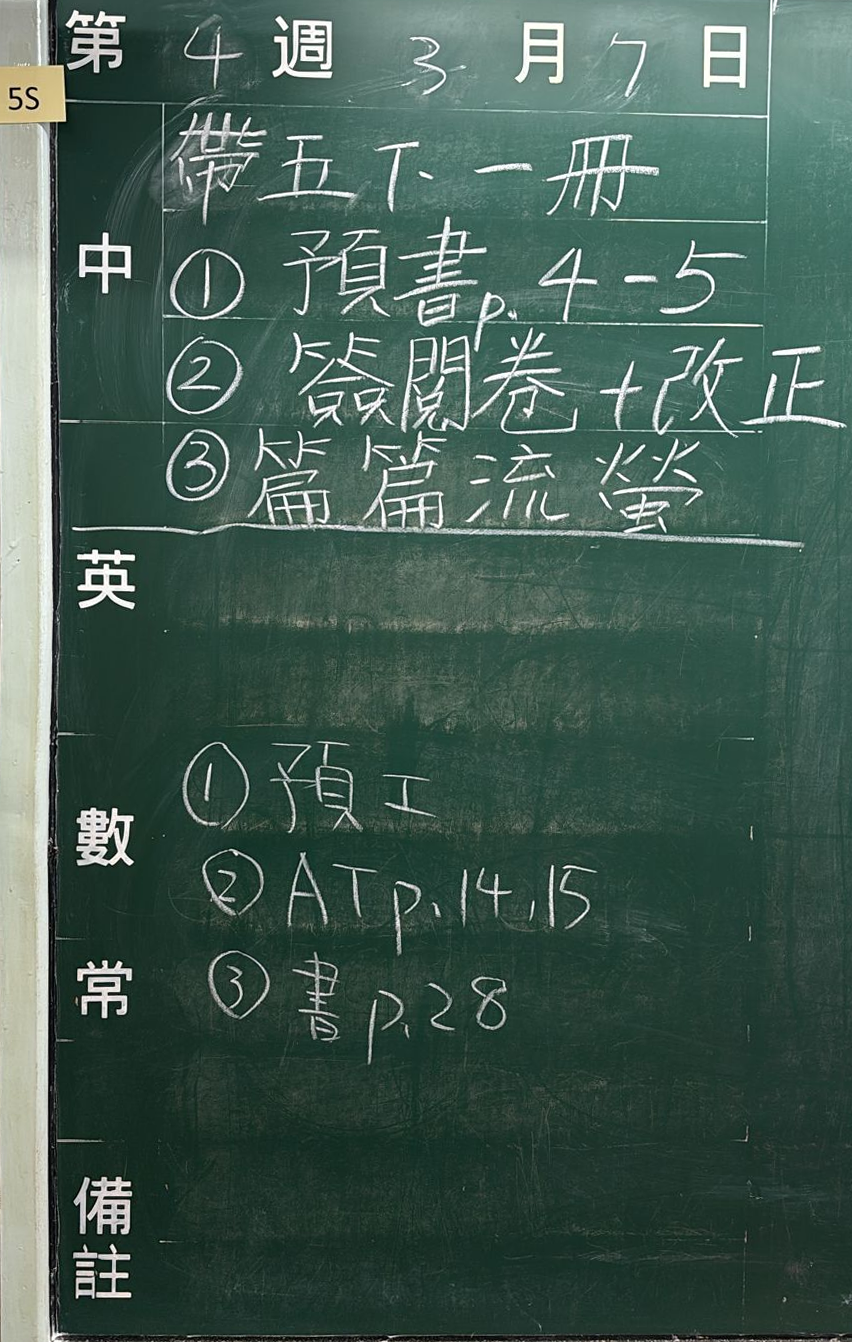 第 4 週 3 月 7 日
5S
中
帶五下一冊
① 預書p.4-5
② 簽閱卷+改正
③ 篇篇流螢
英
數
① 預工
② AT p.14,15
常
③ 書p.28
備註